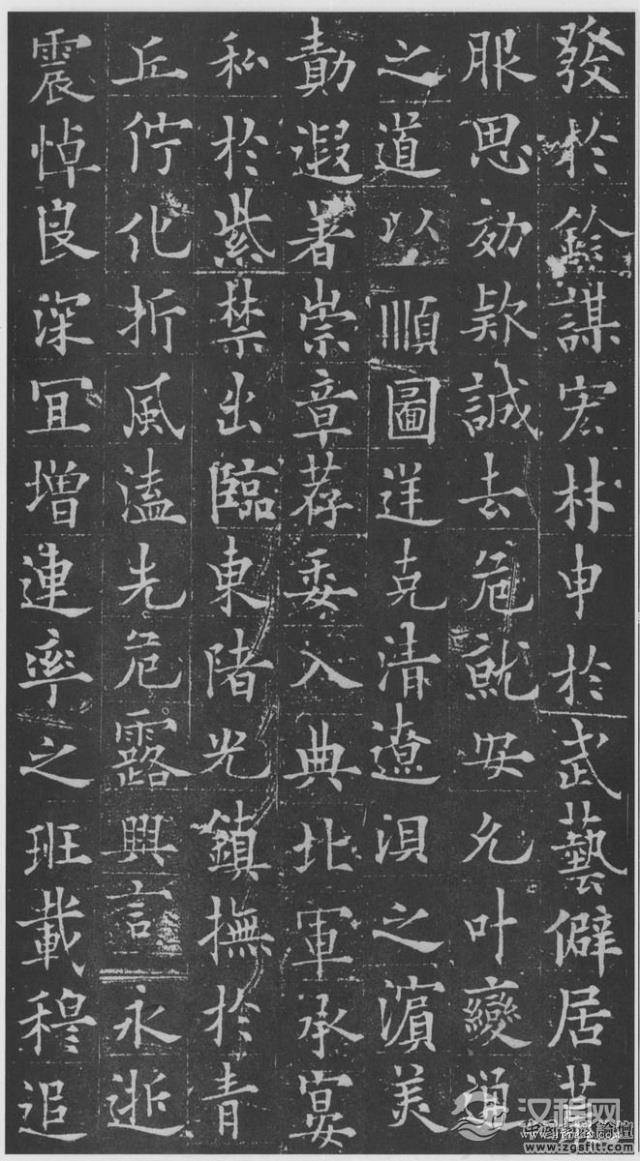 發於謀宏材申於武藝僻居荒
服思効款誠去危就安允叶變通
之道以順圖逆克清遼浿之濱美
勣遐著崇章荐委入典北軍承宴
私於紫禁出臨東陼光鎮撫於青
丘佇化折風溘先危露興言永逝
震悼良深宜增連率之班載穆追
汉程网
www.zgsflt.com